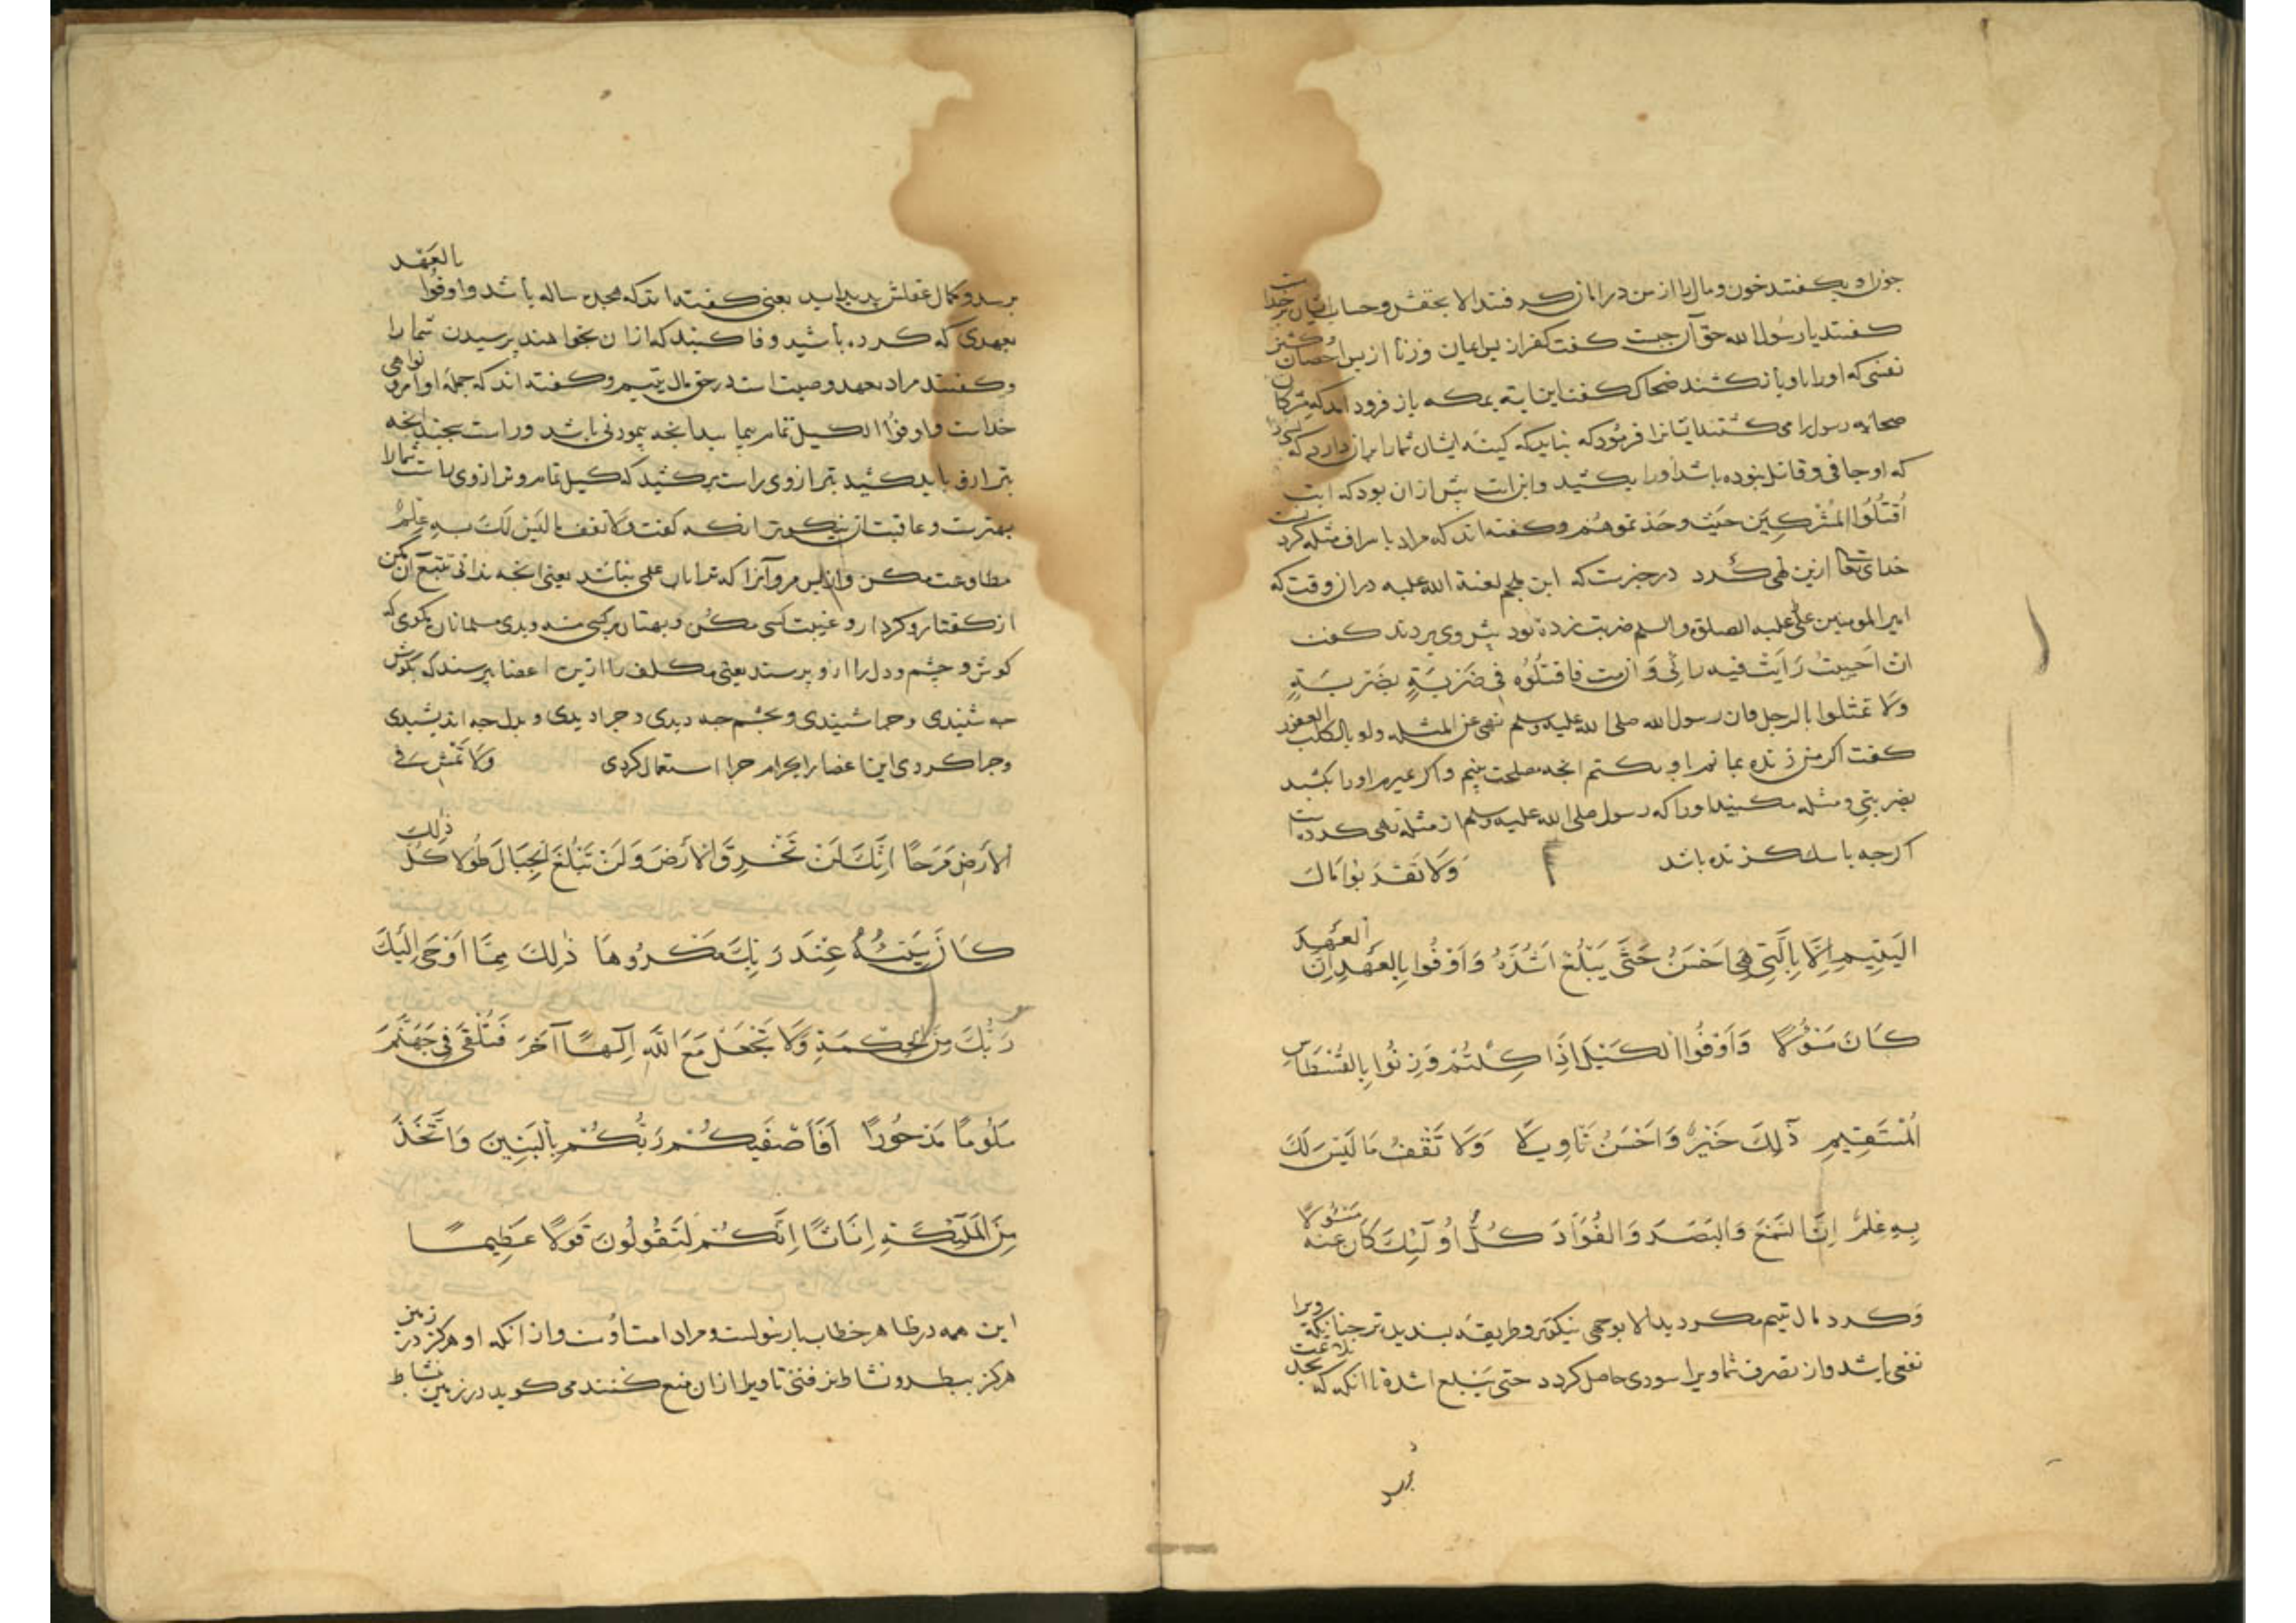 چون او بکفتند خون و مال را از من در امان کرفتند الا بحقش و حساب ایشان بر خدا است
کفتند یا رسول الله حق آن چیست کفت کفر از پس ایمان و زنا از پس احصان و کشتن
نفسی که او را باو باز کشند ضحاک کفت این ایة بمکه باز فرود آمد که مشرکان
صحابه رسول را می کشتند ایشانرا فرمود که نباید که کینه ایشان شما را بران دارد که
که او جافی و قاتل نبوده باشد او را بکشید و این ایت پیش از ان بود که ایت
اُقتُلُوا المُشْرِکِینَ حَیْثُ وَجَدْتموهُم و کفته اند که مراد باسراف مثله کردنست
خدای تعالی ازین نهی کرد در خبرست که ابن ملجم لعنة الله علیه دران وقت که
امیر المومنین علی علیه الصلوة والسلم ضربت زده بود پیش وی بردند کفت
ان احییتُ رَاَیتُ فیه رائی وَ ان مت فاقتلُوُه فی ضَرْبَةٍ بضَرْبَةٍ
ولا تمثلوا بالرجل فان رسول الله صلی الله علیه وسلم نهی عن المثله ولو بالکلب العقور
کفت اکر من زنده بمانم با او بکنم انچه مصلحت بینم و اکر بمیرم او را بکشید
بضربتی و مثله مکنید او را که رسول صلی الله علیه وسلم از مثله نهی کرده است
اکر چه با سک کزنده باشد وَلَا تَقْرَبُوا مَالَ
الیَتِیمِ اِلَّا بِالَّتِی هِیَ اَحْسَنُ حَتَّی یَبْلُغَ اَشُدَّهُ وَاَوْفُوا بِالعَهْدِ اِنَّ العَهْدَ
کَانَ مَسْؤُلًا وَاَوْفُوا الکَیْلَ اِذَا کِلْتُمْ وَزِنُوا بِالقُسْطَاسِ
المُسْتَقِیمِ ذٰلِكَ خَیْرٌ وَاَحْسَنُ تَاوِیلًا وَلَا تَقْفُ مَا لَیْسَ لَكَ
بِهِ عِلْمٌ اِنَّ السَّمْعَ وَالبَصَرَ وَالفُؤَادَ کُلُّ اُولٰئِكَ کَانَ عَنْهُ مَسْؤُلًا
وکرد مال یتیم مکردید الا بوجهی نیکوتر و طریقه پسندیدتر چنانکه ویرا
نفعی باشد و از تصرف شما ویرا سودی حاصل کردد حتی یَبْلغ اشدهٔ تا انکه که بحد بلاغت
برسد
برسد و کمال عقلش پدید اید یعنی کفته اند که هجده ساله باشد و اوفُوا بالعَهْد
بعهدی که کرده باشید وفا کنید که ازان بخواهند پرسیدن شما را
و کفتند مراد بعهد وصیت است در حق مال یتیم و کفته اند که جمله اوامر و نواهی
خداست و اوفُوا الکیل تمام بپیمایید انچه پیمودنی باشد و راست بسنجید انچه
بترازو باید کشید بترازوی راست برکشید که کیل تمام و ترازوی راست شما را
بهترست و عاقبتش نیکوتر انکه کفت وَلَا تقف ما لَیْسَ لَكَ بِهِ عِلْمٌ
مطاوعت مکن و از پس مرو آنرا که ترا بدان علمی نباشد یعنی انچه ندانی تتبع آن مکن
از کفتار و کردار و غیبت کسی مکن و بهتان بر کسی منه و بدی مسلمانان مکوی که
کوش و چشم و دل را از و پرسند یعنی مکلف را ازین اعضا پرسند که بکوش
چه شنیدی و چرا شنیدی و بچشم چه دیدی و چرا دیدی و بدل چه اندیشیدی
و چرا کردی این اعضا را بحرام چرا استعمال کردی وَلَا تَمْشِ فی
الاَرْضِ مَرَحًا اِنَّكَ لَنْ تَخْرِقَ الاَرْضَ وَلَنْ تَبْلُغَ الجِبَالَ طُولًا کُلُّ ذٰلِكَ
کَانَ سَیِّئُهُ عِنْدَ رَبِّكَ مَکْرُوهًا ذٰلِكَ مِمَّا اَوْحَی اِلَیْكَ
رَبُّكَ مِنَ الحِکْمَةِ وَلَا تَجْعَلْ مَعَ اللّٰهِ اِلٰهًا آخَرَ فَتُلْقَی فِی جَهَنَّمَ
مَلُومًا مَدْحُورًا اَفَاَصْفٰیکُمْ رَبُّکُمْ بِالبَنِینَ وَاتَّخَذَ
مِنَ المَلٰئِکَةِ اِنَاثًا اِنَّکُمْ لَتَقُولُونَ قَوْلًا عَظِیمًا
این همه در ظاهر خطاب با رسولست و مراد امت اوست و از انکه او هرکز در زمین
هرکز ببطر و نشاط نرفتی تا ویرا ازان منع کنند می کوید در زمین نشاط